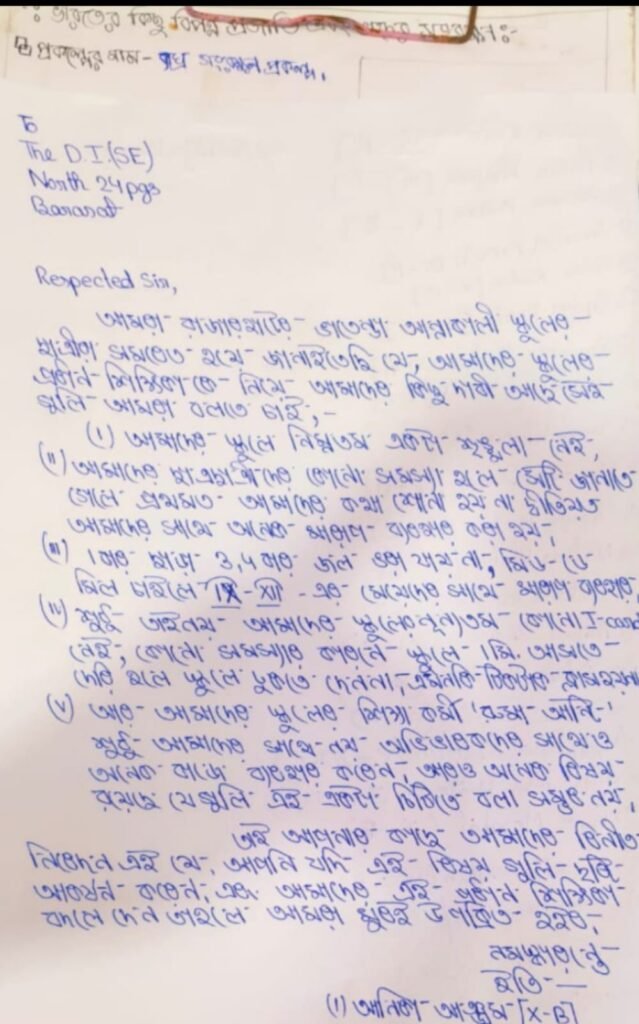 : ভারতের কিছু বিপন্ন প্রজাতি সংরক্ষণ :-
প্রকল্পের নাম - ব্যাঘ্র সংরক্ষণ প্রকল্প।
To
The D.I.(SE)
North 24 pgs
Barasat
Respected Sir,
আমরা রাজারহাটের ভাতেন্ডা আন্নাকালী স্কুলের
ছাত্রীরা সমবেত হয়ে জানাইতেছি যে, আমাদের স্কুলের
প্রধান শিক্ষিকা কে নিয়ে আমাদের কিছু দাবী আছে সেই
গুলি আমরা বলতে চাই,-
(i) আমাদের স্কুলে নিম্নতম একটা শৃঙ্খলা নেই,
(ii) আমাদের ছাত্রছাত্রীদের কোনো সমস্যা হলে সেটি জানাতে
গেলে প্রথমত আমাদের কথা শোনা হয় না দ্বীতিয়ত
আমাদের সাথে অনেক খারাপ ব্যবহার করা হয়,
(iii) 1বার ছাড়া 3,4 বার জল ভরা যায় না, মিড-ডে
মিল চাইলে IX-XII - এর মেয়েদের সাথে খারাপ ব্যবহার,
(iv) শুধু তাইনয় আমাদের স্কুলের নূন্যতম কোনো I-card
নেই, কোনো সমস্যার কারনে স্কুলে 1মি. আসতে
দেরি হলে স্কুলে ঢুকতে দেননা, এমনকি ঠিকঠাক ক্লাসহয়না
(v) আর আমাদের স্কুলের শিক্ষা কর্মী 'রুমা আন্টি'
শুধু আমাদের সাথে নয় অভিভাবকদের সাথেও
অনেক বাজে ব্যবহার করেন, আরও অনেক বিষয়
রয়েছে যেগুলি এই একটা চিঠিতে বলা সম্ভব নয়,
তাই আপনার কাছে আমাদের বিনীত
নিবেদন এই যে, আপনি যদি এই বিষয় গুলি দৃষ্টি
আকর্ষন করেন, এবং আমাদের এই প্রধান শিক্ষিকা
বদলে দেন তাহলে আমরা খুবই উপকৃত হইব,
নমস্কারন্তে
ইতি-
(i) আনিকা আঞ্জুম [X-B]